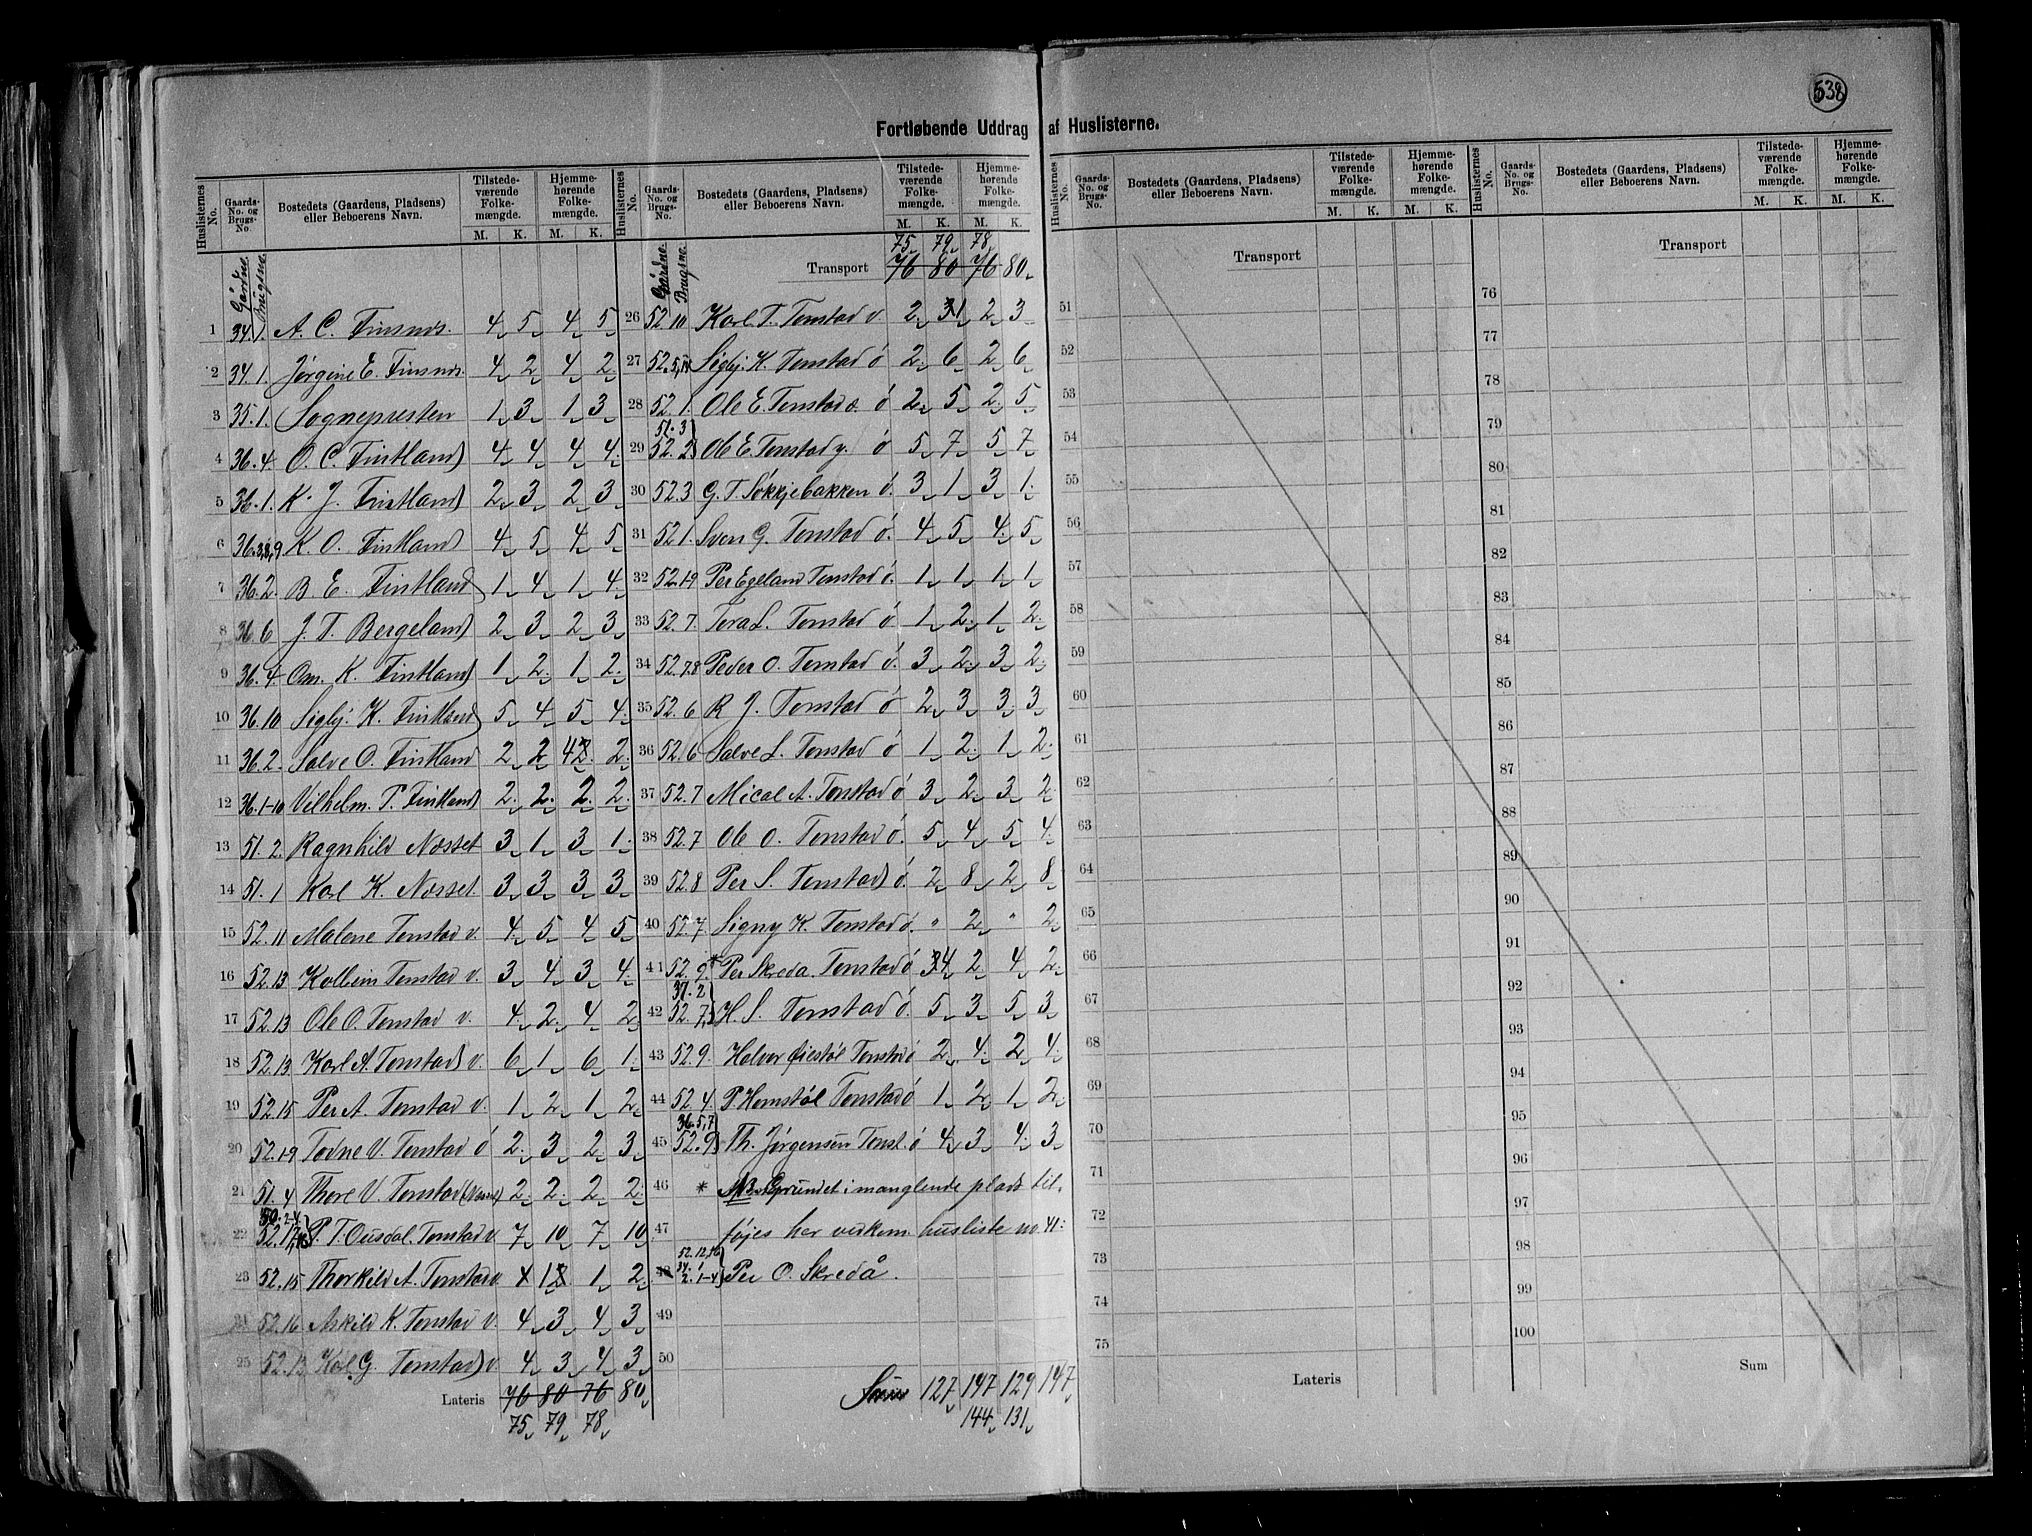 538
Fortløbende Uddrag af Huslisterne.
Huslisternes No. | Gaards-No. og Brugs-No. | Bostedets (Gaardens, Pladsens) eller Beboerens Navn. | Tilstedeværende Folkemængde. M. K. | Hjemmehørende Folkemængde. M. K.
Gårdne. Brugsne.
1 34. 1. A. C. Finsnes. 4 5 4 5
2 34. 1. Jørgine E. Finsnes. 4 2 4 2
3 35. 1. Sognepresten 1 3 1 3
4 36. 4. O. C. Fintland 4 4 4 4
5 36. 1. K. J. Fintland 2 3 2 3
6 36. 3,8,9 K. O. Fintland 4 5 4 5
7 36. 2. B. E. Fintland 1 4 1 4
8 36. 6 J. T. Bergeland 2 3 2 3
9 36. 4. Om. K. Fintland 1 2 1 2
10 36. 10 Sigbj. K. Fintland 5 4 5 4
11 36. 2. Salve O. Fintland 2 2 4 2
12 36. 1-10 Vilhelm. P. Fintland 2 2 2 2
13 51. 2. Ragnhild Næsset 3 1 3 1
14 51. 1 Karl K. Næsset. 3 3 3 3
15 52. 11 Malene Tonstad v. 4 5 4 5
16 52. 13 Kolbein Tonstad v. 3 4 3 4
17 52. 13 Ole O. Tonstad v. 4 2 4 2
18 52. 13 Karl A. Tonstad v. 6 1 6 1
19 52. 15 Per A. Tonstad v. 1 2 1 2
20 52. 19 Todne V. Tonstad ó 2 3 2 3
21 51. 4 Thore V. Tonstad 2 2 2 2
22 52. 17 P. T. Ousdal. Tonstad v. 7 10 7 10
23 52. 15 Thorkild A. Tonstad v. 1 1 2
24 52. 16 Askild K. Tonstad v. 4 3 4 3
25 52. 13 Karl G. Tonstad v. 4 3 4 3
Lateris 76 80 76 80
75 79 78
Huslisternes No. | Gaards-No. og Brugs-No. | Bostedets (Gaardens, Pladsens) eller Beboerens Navn. | Tilstedeværende Folkemængde. M. K. | Hjemmehørende Folkemængde. M. K.
Gårdne. Brugsne.
75 79 78
Transport 76 80 76 80
26 52 10 Karl. T. Tonstad v 2 1 2 3
27 52. 5,14 Sigbj. K. Tonstad ó 2 6 2 6
28 52. 1. Ole E. Tonstad æ. ó 2 5 2 5
51. 3
29 52. 2 Ole E. Tonstad y. ó 5 7 5 7
30 52. 3 G. T. Søkkjebakken ó. 3 1 3 1
31 52 1. Sven G. Tonstad ó. 4 5 4 5
32 52. 19 Per Egeland Tonstad ó. 1 1 1 1
33 52. 7. Tora L. Tonstad ó 1 2 1 2
34 52. 7.8 Peder O. Tonstad ó. 3 2 3 2
35 52. 6 R J. Tonstad ó 2 3 3 3
36 52. 6 Salve L. Tonstad ó 1 2 1 2
37 52. 7 Mical A. Tonstad ó 3 2 3 2
38 52. 7 Ole O. Tonstad ó. 5 4 5 4
39 52. 8 Per S. Tonstad ó. 2 8 2 8
40 52. 7 Signy K. Tonstad ó. " 2 " 2
41 52. 9. * Per Skreda. Tonstad ó 4 2 4 2
37. 2
42 52. 7, H. S. Tonstad ó. 5 3 5 3
43 52. 9. Halvor Øiestøl Tonstad ó 2 4 2 4
44 52. 4. P Homstøl Tonstad ó 1 2 1 2
36. 5,7
45 52. 9 Th. Jørgensen Tonst. ó 4 3 4 3
46 * NB. Grundet i manglende plads til-
47 føjes her vedkom husliste no 41:
52. 12,16
34. 1
48 2. 1-4 Per O. Skredå.
49
50
Sum 127 147 129 147
144 131
Huslisternes No. | Gaards-No. og Brugs-No. | Bostedets (Gaardens, Pladsens) eller Beboerens Navn. | Tilstedeværende Folkemængde. M. K. | Hjemmehørende Folkemængde. M. K.
Transport
51
52
53
54
55
56
57
58
59
60
61
62
63
64
65
66
67
68
69
70
71
72
73
74
75
Lateris
Huslisternes No. | Gaards-No. og Brugs-No. | Bostedets (Gaardens, Pladsens) eller Beboerens Navn. | Tilstedeværende Folkemængde. M. K. | Hjemmehørende Folkemængde. M. K.
Transport
76
77
78
79
80
81
82
83
84
85
86
87
88
89
90
91
92
93
94
95
96
97
98
99
100
Sum